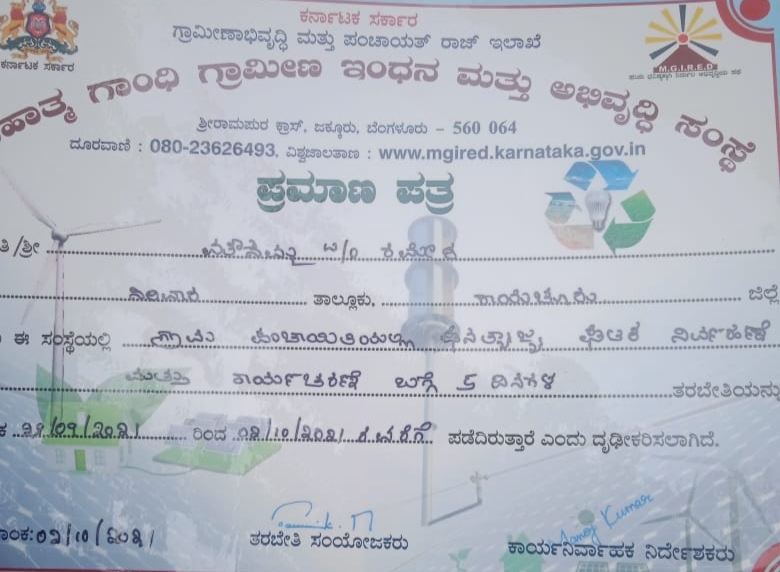 ಕರ್ನಾಟಕ ಸರ್ಕಾರ
ಗ್ರಾಮೀಣಾಭಿವೃದ್ಧಿ ಮತ್ತು ಪಂಚಾಯತ್ ರಾಜ್ ಇಲಾಖೆ
ಕರ್ನಾಟಕ ಸರ್ಕಾರ
M.G.I.R.E.D
ಹಾತ್ಮ ಗಾಂಧಿ ಗ್ರಾಮೀಣ ಇಂಧನ ಮತ್ತು ಅಭಿವೃದ್ಧಿ ಸಂಸ್ಥೆ
ಶ್ರೀರಾಮಪುರ ಕ್ರಾಸ್, ಜಕ್ಕೂರು, ಬೆಂಗಳೂರು - 560 064
ದೂರವಾಣಿ : 080-23626493, ವಿಶ್ವಜಾಲತಾಣ : www.mgired.karnataka.gov.in
ಪ್ರಮಾಣ ಪತ್ರ
ತಿ/ಶ್ರೀ
ತಾಲ್ಲೂಕು, ಜಿಲ್ಲೆ
ಈ ಸಂಸ್ಥೆಯಲ್ಲಿ ಗ್ರಾಮ ಪಂಚಾಯಿತಿಯಲ್ಲಿ ಘನತ್ಯಾಜ್ಯ ಘಟಕ ನಿರ್ವಹಣೆ
ಮತ್ತು ಕಾರ್ಯಾಚರಣೆ ಬಗ್ಗೆ 5 ದಿನಗಳ ತರಬೇತಿಯನ್ನು
ರಿಂದ ರವರೆಗೆ ಪಡೆದಿರುತ್ತಾರೆ ಎಂದು ದೃಢೀಕರಿಸಲಾಗಿದೆ.
ಾಂಕ:
Manoj Kumar
ತರಬೇತಿ ಸಂಯೋಜಕರು
ಕಾರ್ಯನಿರ್ವಾಹಕ ನಿರ್ದೇಶಕರು